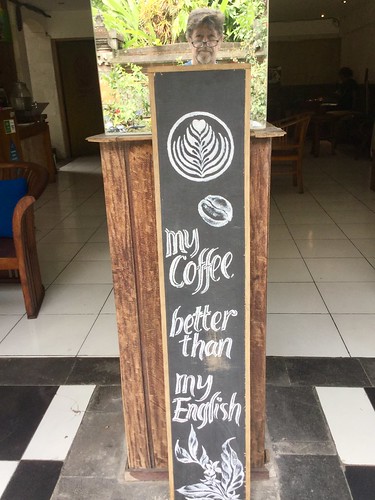 my
Coffee
better
than
my
English